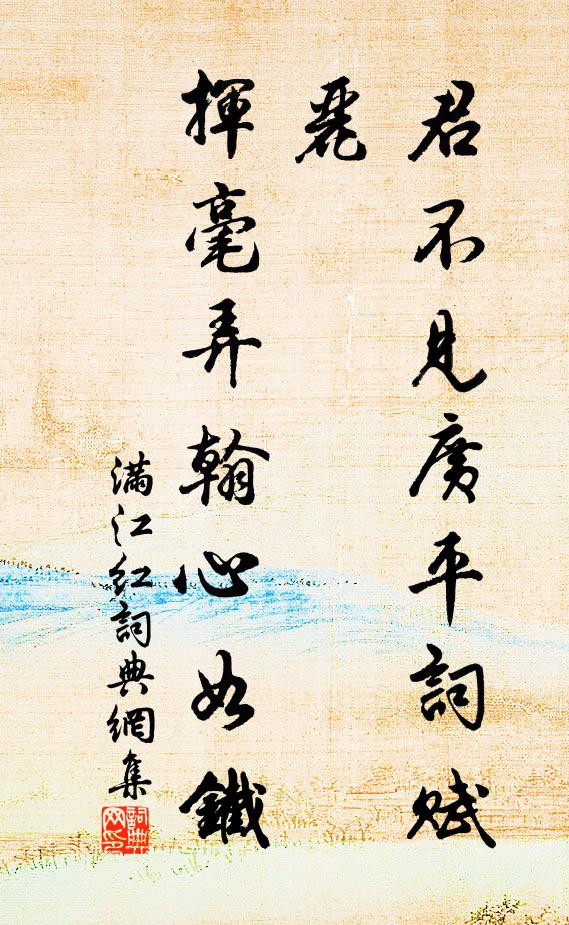 君不見廣平詞賦
麗
揮毫弄翰心如鐵
满江红詞典網集
詞典
网印